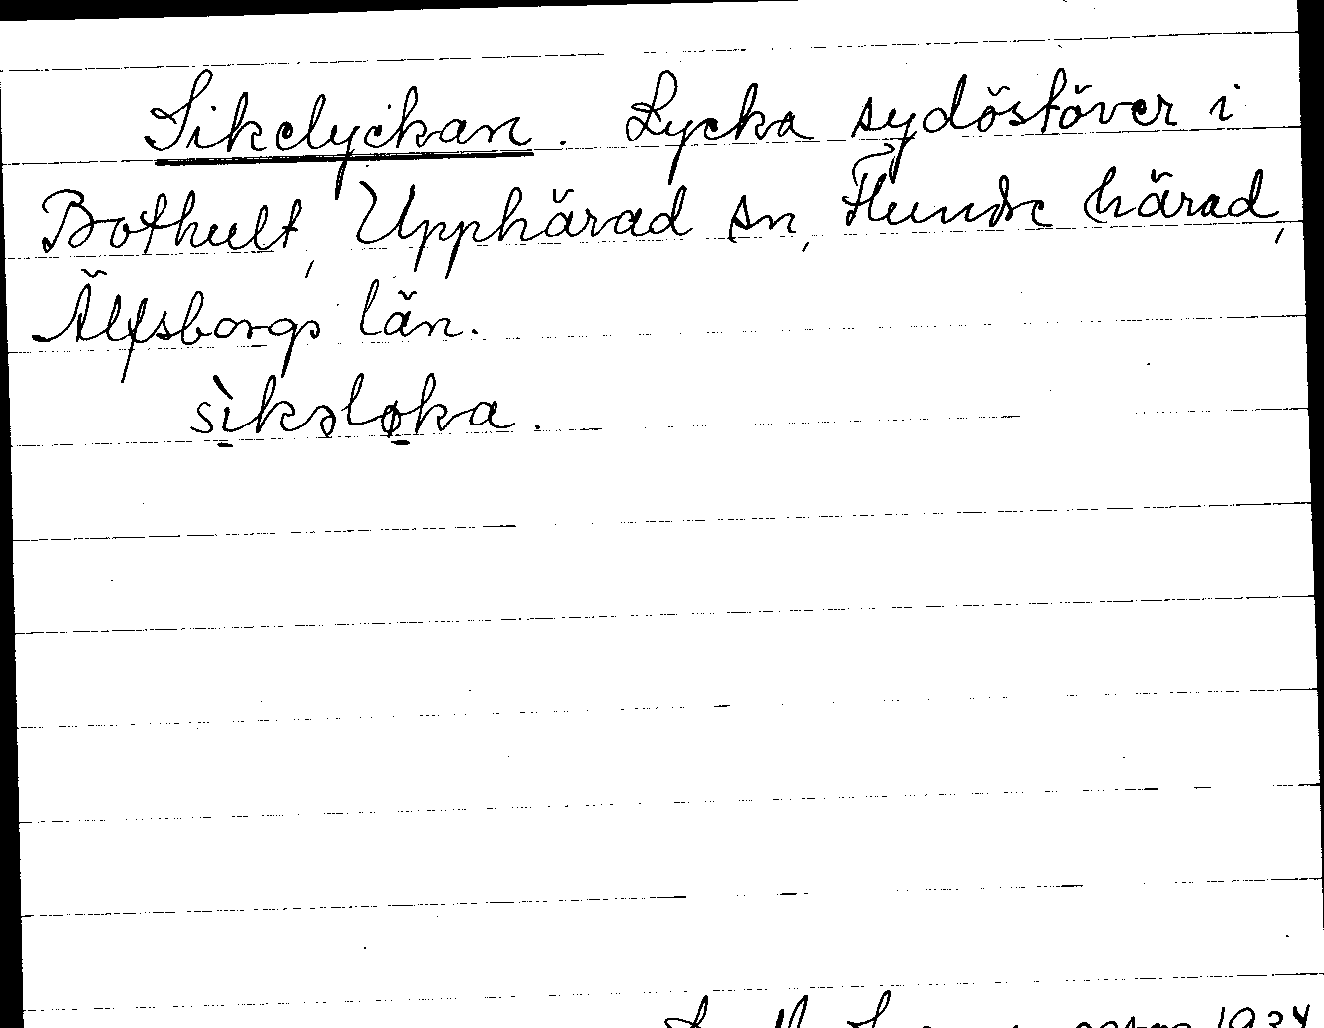 Sikelyckan. Lycka sydöstöver i
Bothult, Upphärad sn, Flundre härad,
Älfsborgs län.
sìkəløka.
1934